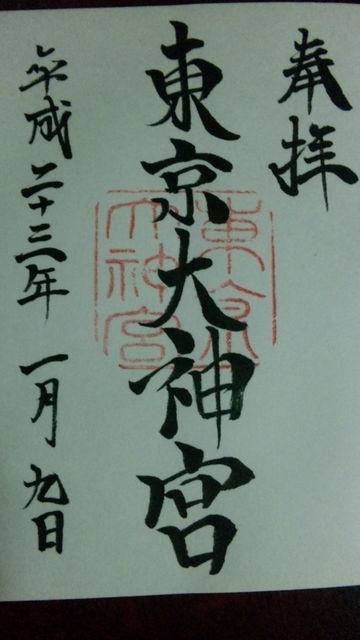 奉拝
東京大神宮
東京大神宮
平成二十三年一月九日